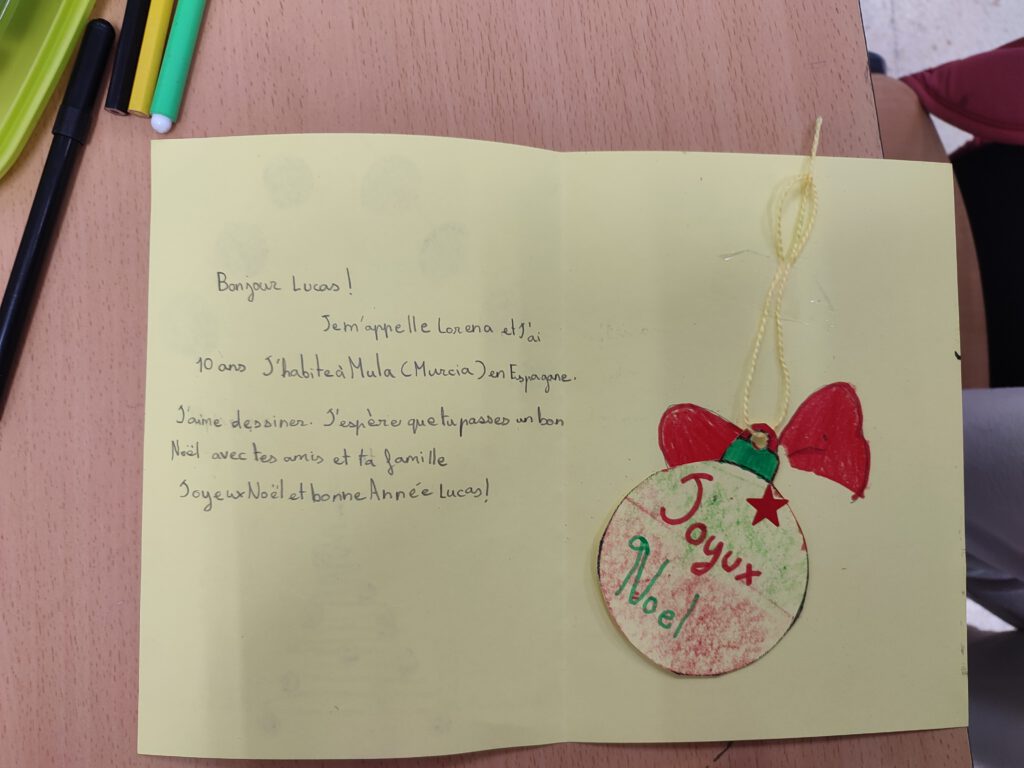 Bonjour Lucas!
Je m'appelle Lorena et J'ai
10 ans J'habite à Mula (Murcia) en Espagane.
J'aime dessiner. J'espère que tu passes un bon
Noël avec tes amis et ta famille
Joyeux Noël et bonne Année Lucas!
Joyux
Noel